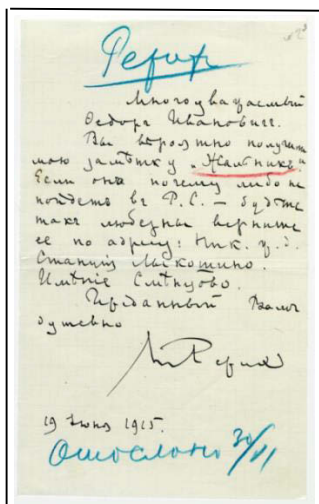 Рерих
Многоуважаемый
Федоръ Ивановичъ.
Вы вѣроятно получили
мою замѣтку „Жальникъ“
Если она почему либо не
пойдетъ въ Р.С. – будьте
такъ любезны верните
ее по адресу: Ник. ж. д.
Станція Лыкошино.
Имѣніе Смѣнцово.
Преданный Вамъ
душевно
НРерих
19 Iюня 1915.
Отослано 30/VI